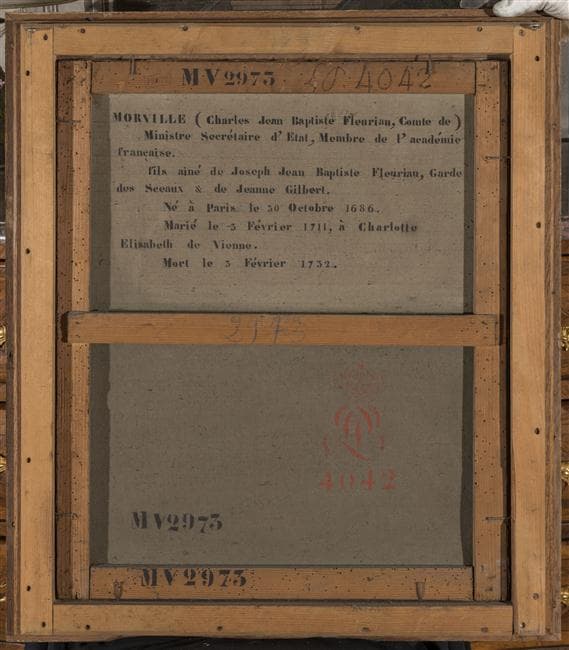 MV2973 LP 4042
MORVILLE ( Charles Jean Baptiste Fleuriau, Comte de )
Ministre Secrétaire d' Etat, Membre de l' académie
française.
fils ainé de Joseph Jean Baptiste Fleuriau, Garde
des Sceaux & de Jeanne Gilbert.
Né à Paris le 30 Octobre 1686.
Marié le 3 Février 1711, à Charlotte
Elisabeth de Vienne.
Mort le 3 Février 1732.
2973
4042
MV2973
MV2973